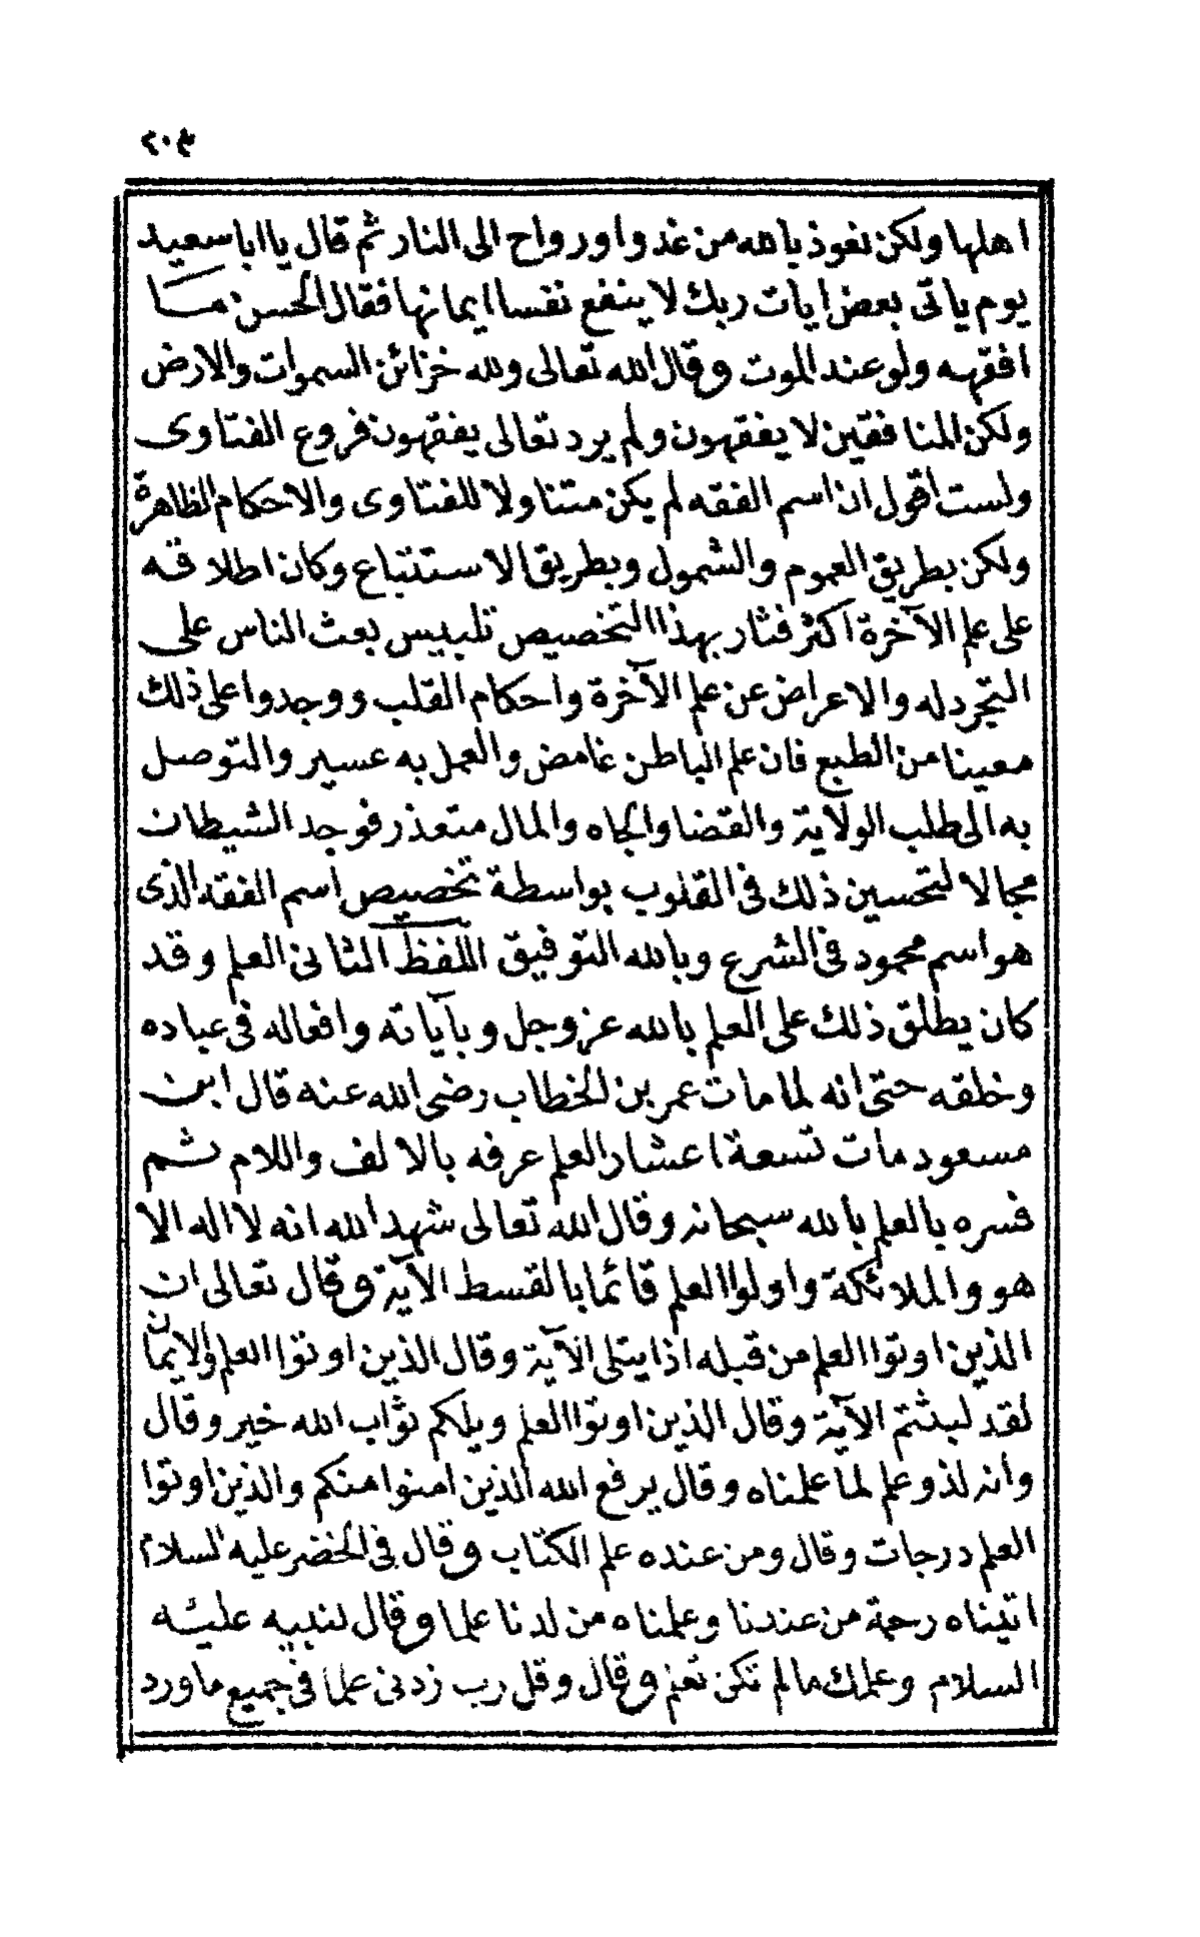 ٢٠٤
اهلها ولكن نعوذ بالله من غد واورواح الى النار ثم قال يا ابا سعيد
يوم ياتى بعض ايات ربك لا ينفع نفسا ايمانها فقال الحسن ما
افقهه ولو عند الموت وقال الله تعالى ولله خزائن السموات والارض
ولكن المنافقين لا يفقهون ولم يرد تعالى يفقهون فروع الفتاوى
ولست اقول ان اسم الفقه لم يكن متناولا للفتاوى والاحكام الظاهرة
ولكن بطريق العموم والشمول وبطريق الاستتباع وكان اطلاقه
على علم الآخرة اكثر فثار بهذا التخصيص تلبيس بعث الناس على
التجرد له والاعراض عن علم الآخرة واحكام القلب ووجدوا على ذلك
معينا من الطبع فان علم الباطن غامض والعمل به عسير والتوصل
به الى طلب الولاية والقضا والجاه والمال متعذر فوجد الشيطان
مجالا لتحسين ذلك فى القلوب بواسطة تخصيص اسم الفقه الذى
هو اسم محمود فى الشرع وبالله التوفيق اللفظ الثانى العلم وقد
كان يطلق ذلك على العلم بالله عز وجل وبآياته وافعاله فى عباده
وخلقه حتى انه لما مات عمر بن الخطاب رضى الله عنه قال ابن
مسعود مات تسعة اعشار العلم عرفه بالالف واللام ثم
فسره بالعلم بالله سبحانه وقال الله تعالى شهد الله انه لا اله الا
هو والملائكة واولوا العلم قائما بالقسط الآية وقال تعالى ان
الذين اوتوا العلم من قبله اذا يتلى الآية وقال الذين اوتوا العلم والايمان
لقد لبثتم الآية وقال الذين اوتوا العلم ويلكم ثواب الله خير وقال
وانه لذو علم لما علمناه وقال يرفع الله الذين امنوا منكم والذين اوتوا
العلم درجات وقال ومن عنده علم الكتاب وقال فى الخضر عليه السلام
اتيناه رحمة من عندنا وعلمناه من لدنا علما وقال لنبيه عليه
السلام وعلمك مالم تكن تعلم وقال وقل رب زدنى علما فى جميع ماورد